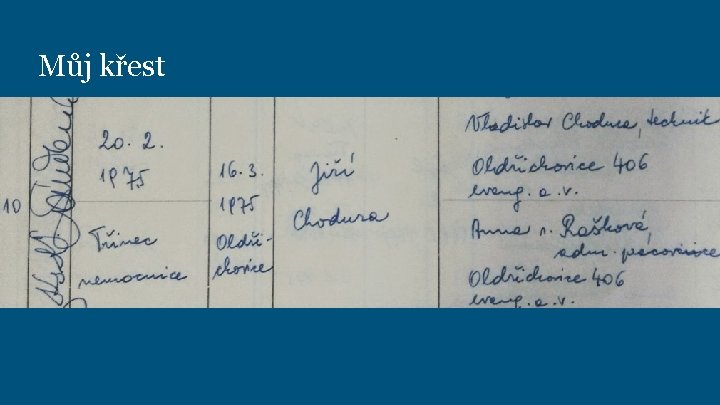 Můj křest
10
20. 2.
1975
Třinec
nemocnice
16. 3.
1975
Oldři-
chovice
Jiří
Chodura
Vladislav Chodura, technik
Oldřichovice 406
evang. a. v.
Anna r. Rašková,
adm. pracovnice
Oldřichovice 406
evang. a. v.